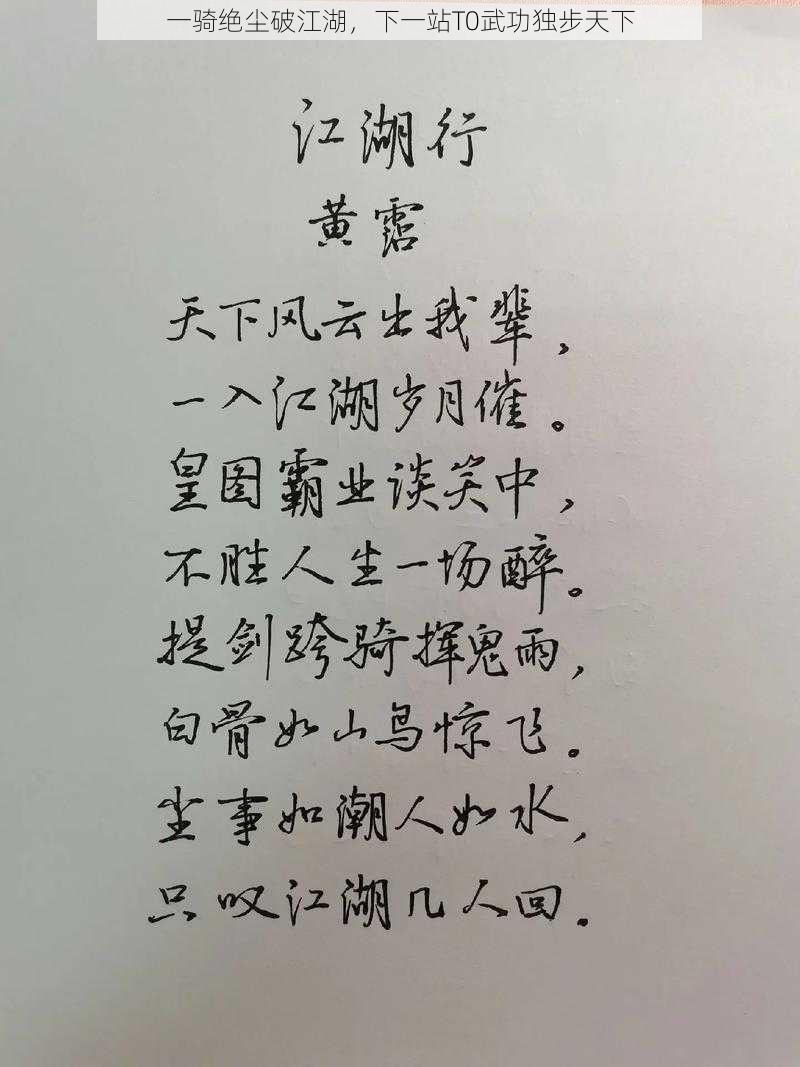 一骑绝尘破江湖，下一站T0武功独步天下
江湖行
黄霑
天下风云出我辈，
一入江湖岁月催。
皇图霸业谈笑中，
不胜人生一场醉。
提剑跨骑挥鬼雨，
白骨如山鸟惊飞。
尘事如潮人如水，
只叹江湖几人回。